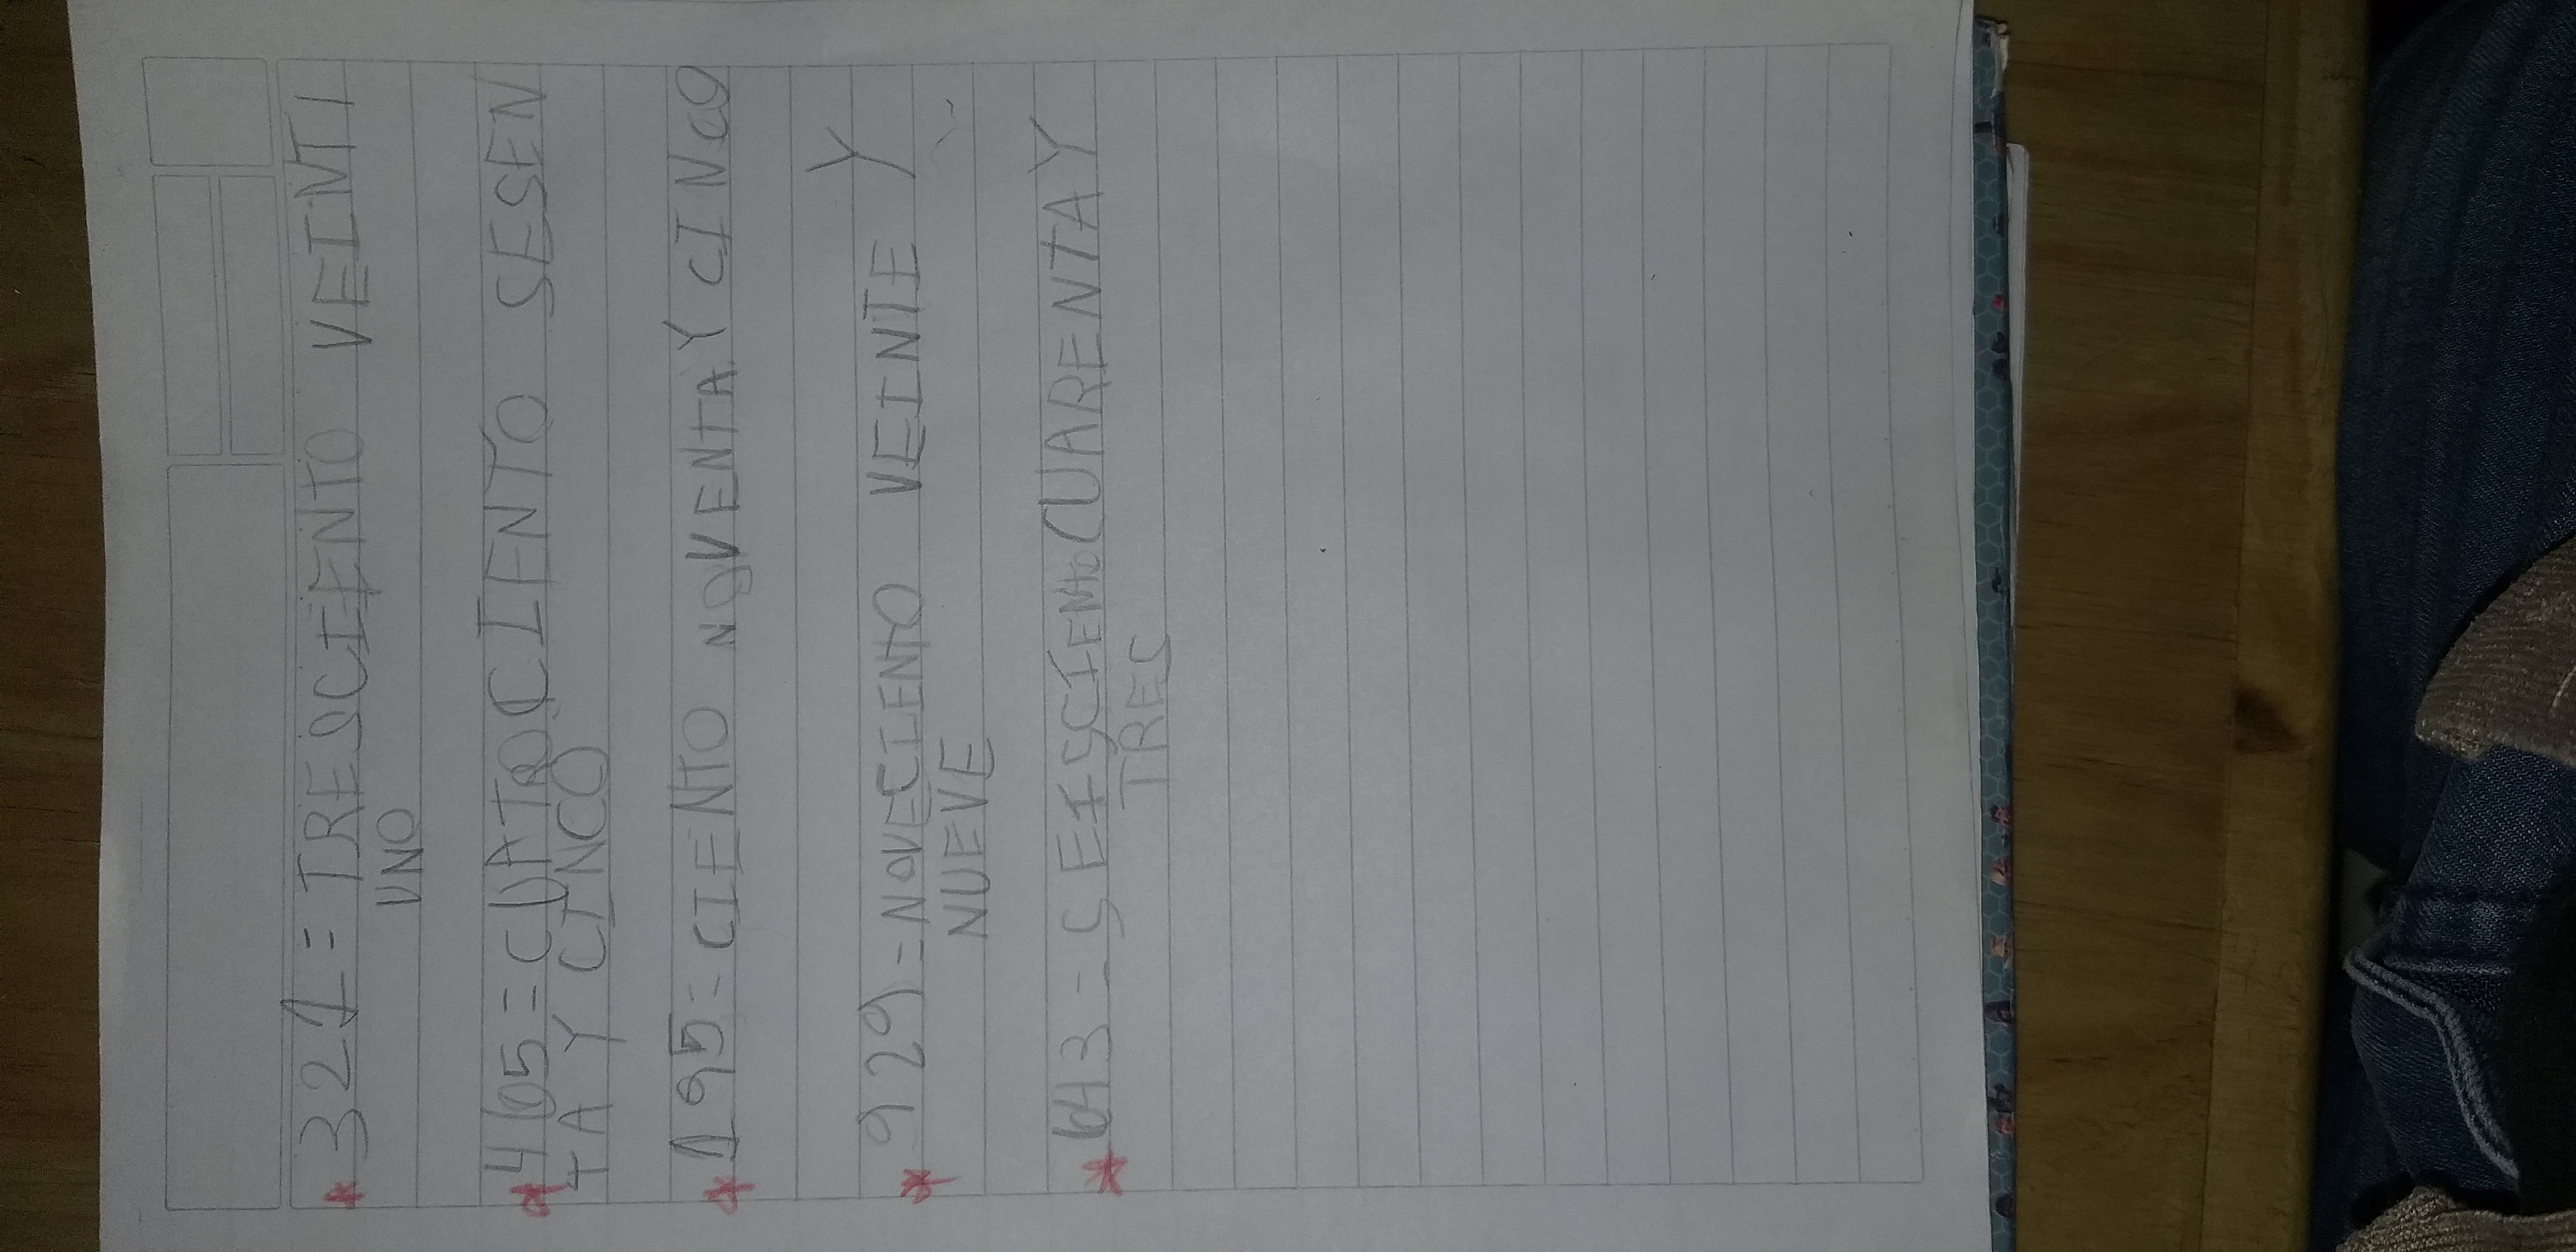 * 321 = TRESCIENTO VEINTI
UNO
* 465 = CUATROCIENTO SESEN
TA Y CINCO
* 195 = CIENTO NOVENTA Y CINCO
* 929 = NOVECIENTO VEINTE Y
NUEVE
* 643 = SEISCIENTO CUARENTA Y
TREC